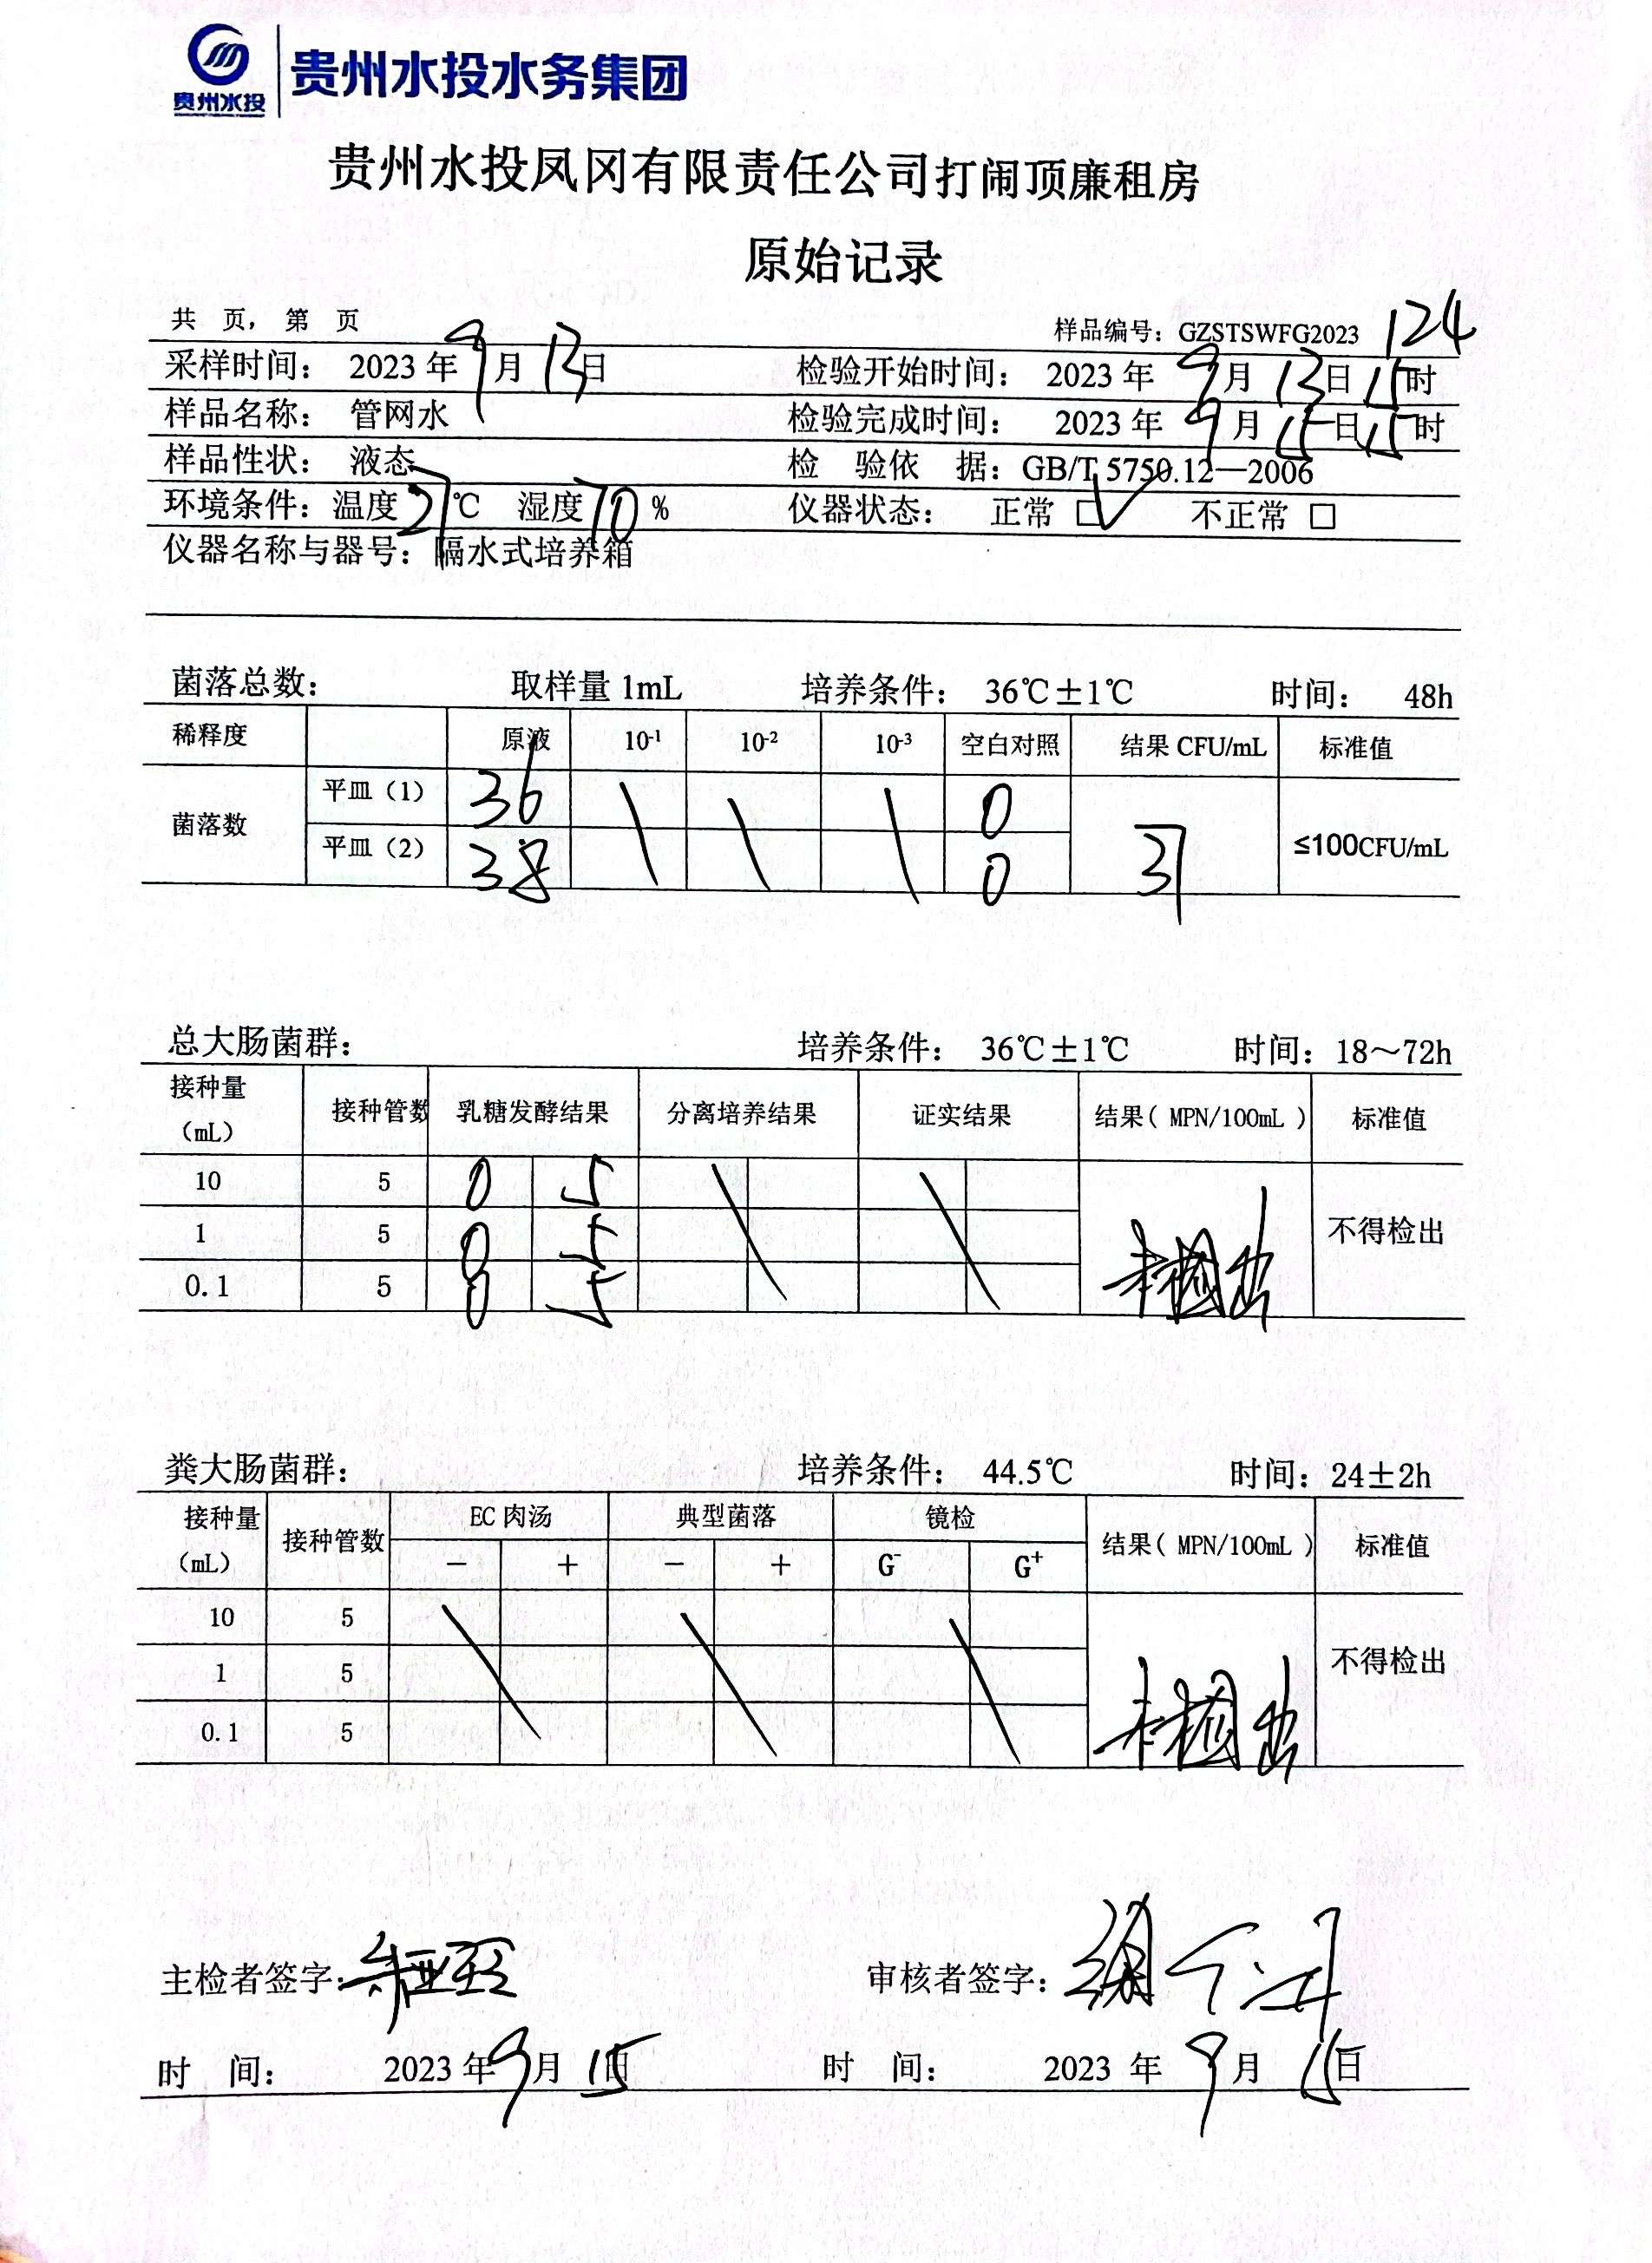 贵州水投 贵州水投水务集团
贵州水投凤冈有限责任公司打闹顶廉租房
原始记录
共 页， 第 页 样品编号：GZSTSWFG2023 124
采样时间： 2023 年 9 月 13 日 检验开始时间： 2023 年 9 月 13 日 15 时
样品名称： 管网水 检验完成时间： 2023 年 9 月 15 日 15 时
样品性状： 液态 检 验依 据：GB/T 5750.12—2006
环境条件：温度 27 ℃ 湿度 70 % 仪器状态： 正常 ☑ 不正常 □
仪器名称与器号：隔水式培养箱
菌落总数： 取样量 1mL 培养条件： 36℃±1℃ 时间： 48h
稀释度 原液 10-1 10-2 10-3 空白对照 结果 CFU/mL 标准值
菌落数 平皿（1） 36 \ \ \ 0 37 ≤100CFU/mL
平皿（2） 38 0
总大肠菌群： 培养条件： 36℃±1℃ 时间：18～72h
接种量（mL） 接种管数 乳糖发酵结果 分离培养结果 证实结果 结果（ MPN/100mL ） 标准值
10 5 0 5 \ \ 未检出 不得检出
1 5 0 5
0.1 5 0 5
粪大肠菌群： 培养条件： 44.5℃ 时间：24±2h
接种量（mL） 接种管数 EC 肉汤 典型菌落 镜检 结果（ MPN/100mL ） 标准值
－ ＋ － ＋ G- G+
10 5 \ \ \ 未检出 不得检出
1 5
0.1 5
主检者签字： 审核者签字：
时 间： 2023 年 9 月 15 日 时 间： 2023 年 9 月 15 日